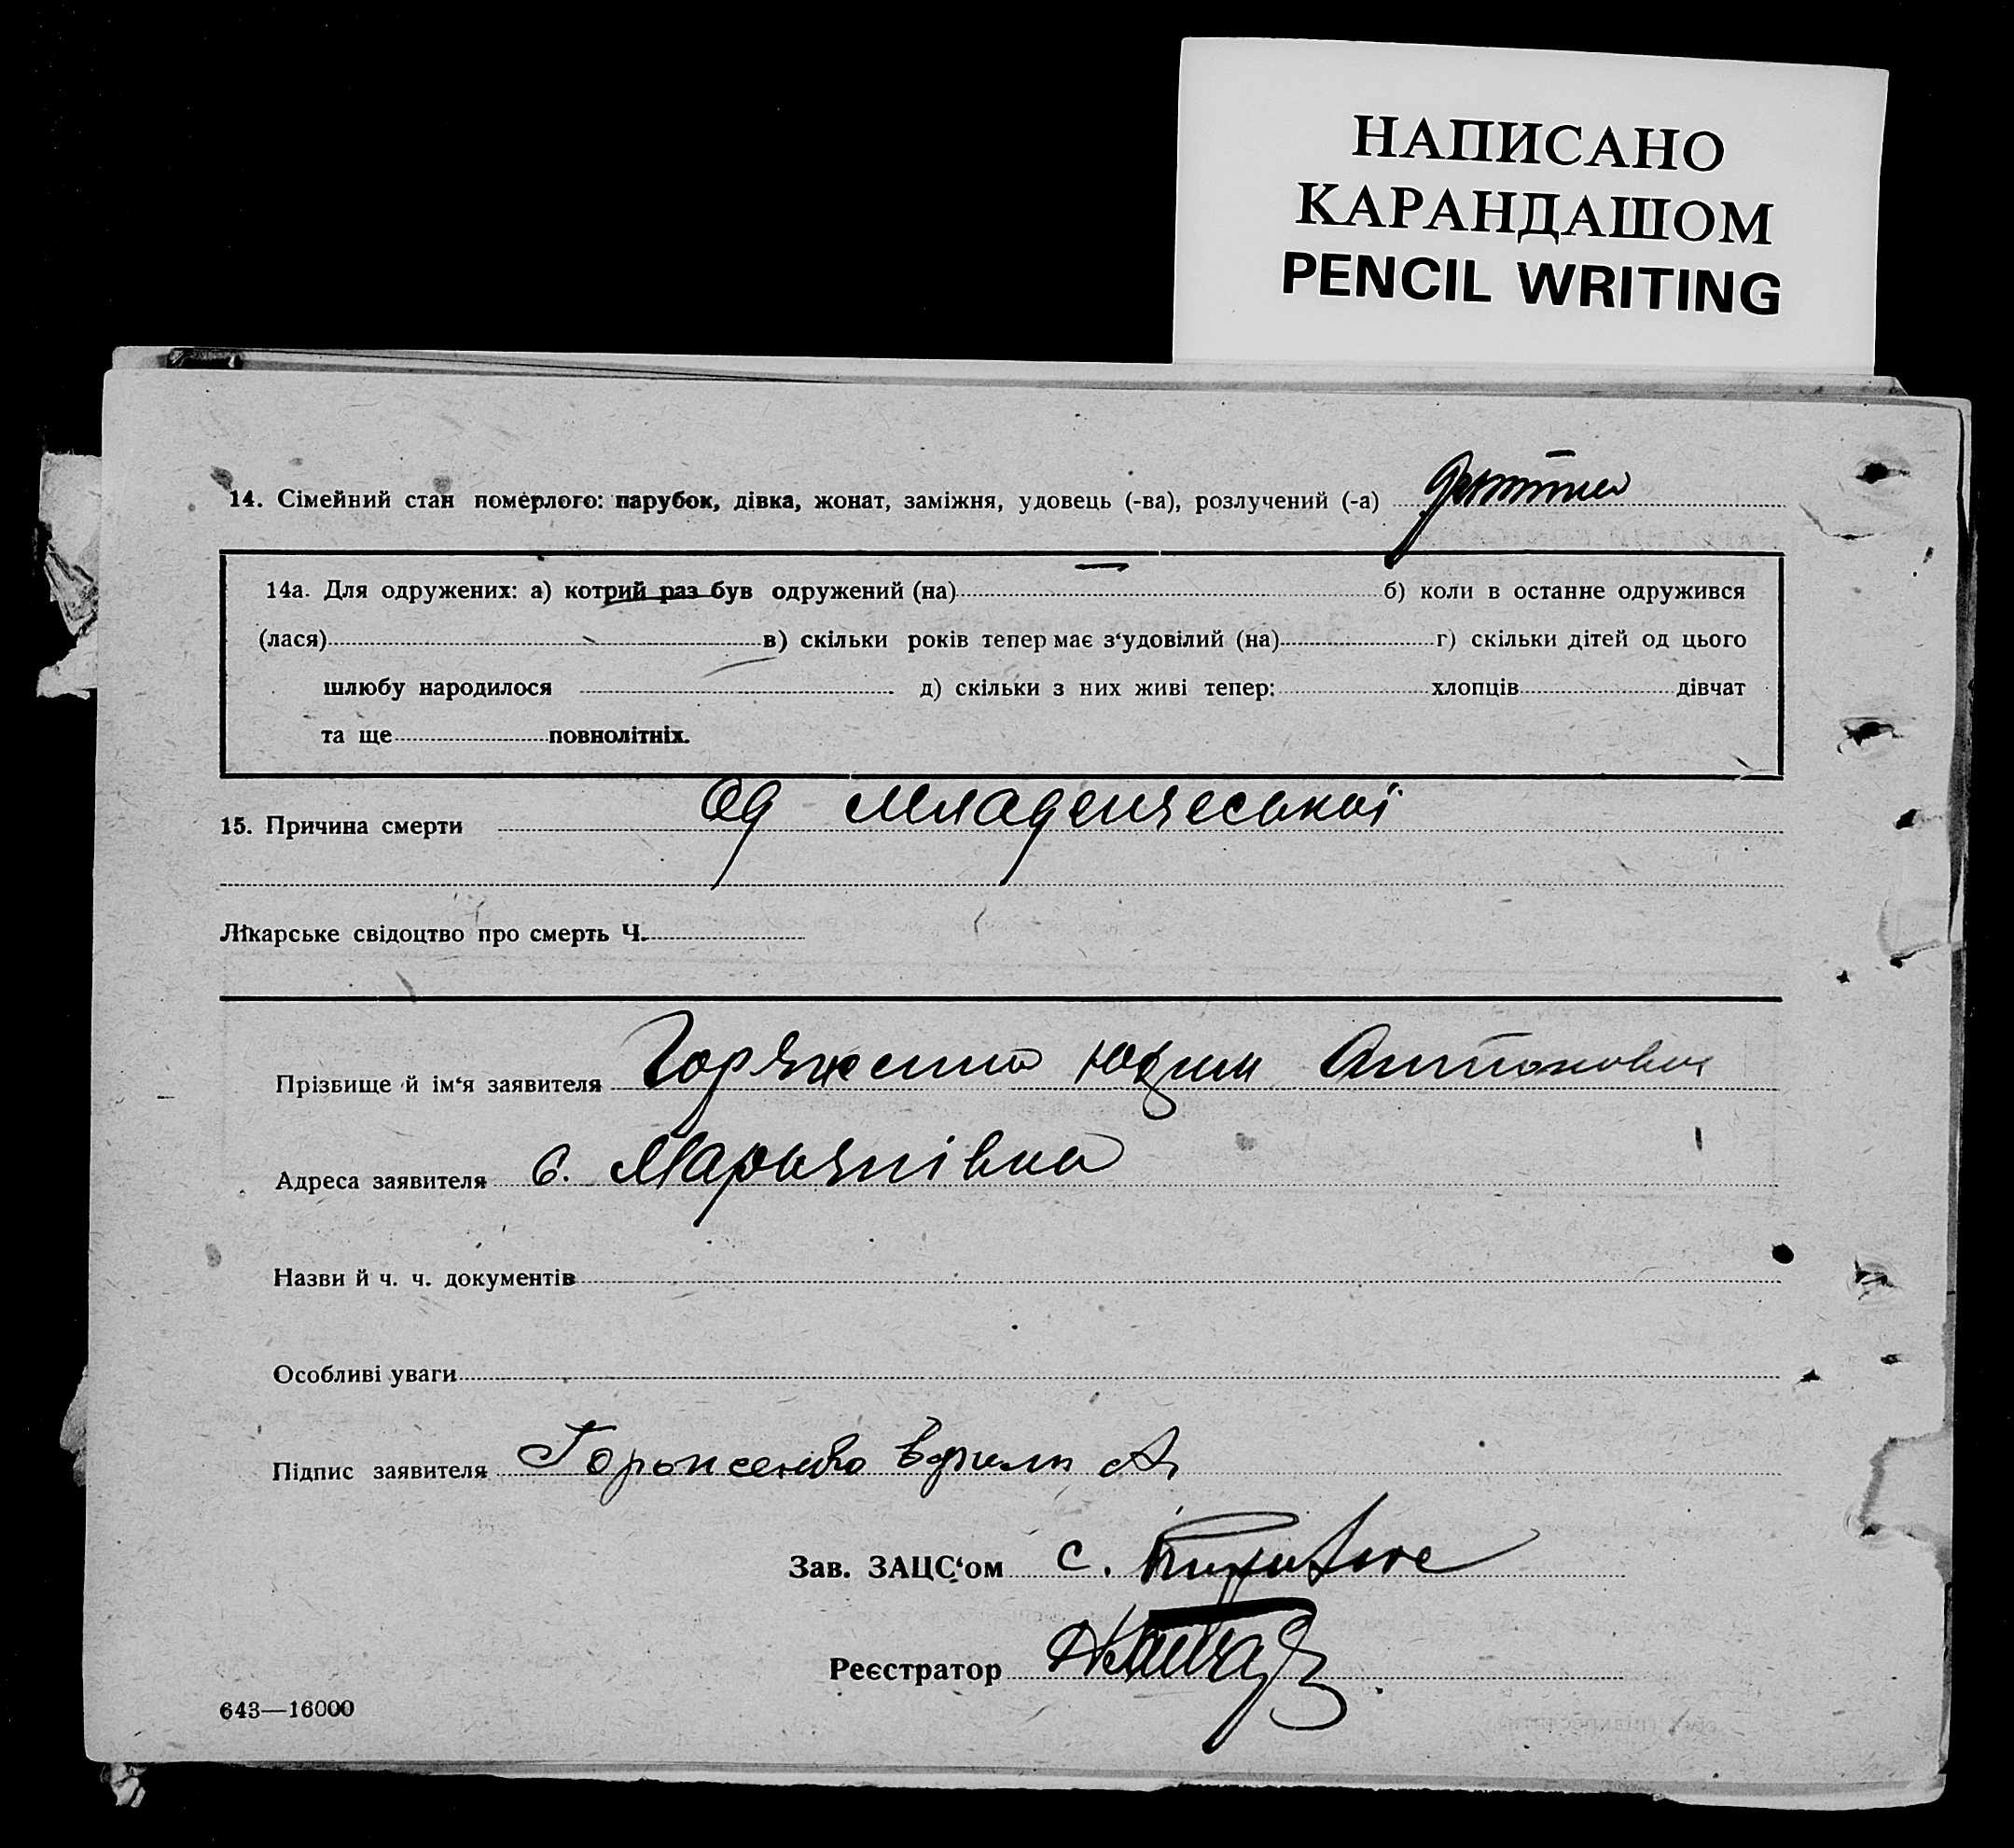 НАПИСАНО
КАРАНДАШОМ
PENCIL WRITING
14. Сімейний стан померлого: парубок, дівка, жонат, заміжня, удовець (-ва), розлучений (-а) дитина
14а. Для одружених: а) котрий раз був одружений (на) — б) коли в останне одружився
(лася) в) скільки років тепер має з‘удовілий (на) г) скільки дітей од цього
шлюбу народилося д) скільки з них живі тепер: хлопців дівчат
та ще повнолітніх.
15. Причина смерти Од Младенческої
Лікарське свідоцтво про смерть Ч.
Прізвище й ім‘я заявителя Антонович
Адреса заявителя с. Марьянівка
Назви й ч. ч. документів
Особливі уваги
Підпис заявителя А
Зав. ЗАЦС‘ом С.
Реєстратор
643—16000